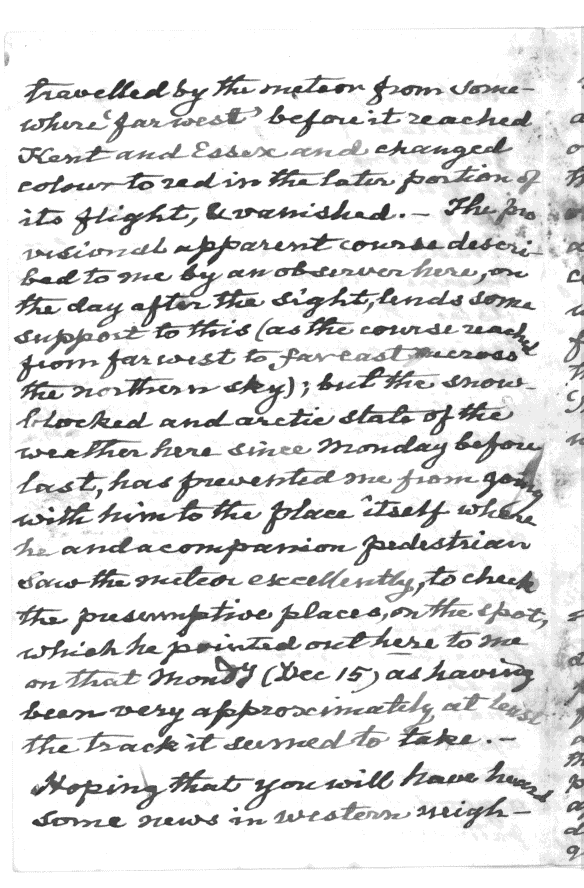 travelled by the meteor from some-
where 'far west' before it reached
Kent and Essex and changed
colour to red in the later portion of
its flight, & vanished. — The pro
visional apparent course descri-
bed to me by an observer here, on
the day after the sight, lends some
support to this (as the course reached
from far west to far east across
the northern sky); but the snow-
blocked and arctic state of the
weather here since Monday before
last, has prevented me from going
with him to the place itself where
he and a companion pedestrian
saw the meteor excellently, to check
the presumptive places, on the spot,
which he pointed out here to me
on that Mondy (Dec 15) as having
been very approximately, at least
the track it seemed to take. —
Hoping that you will have heard
some news in western neigh-